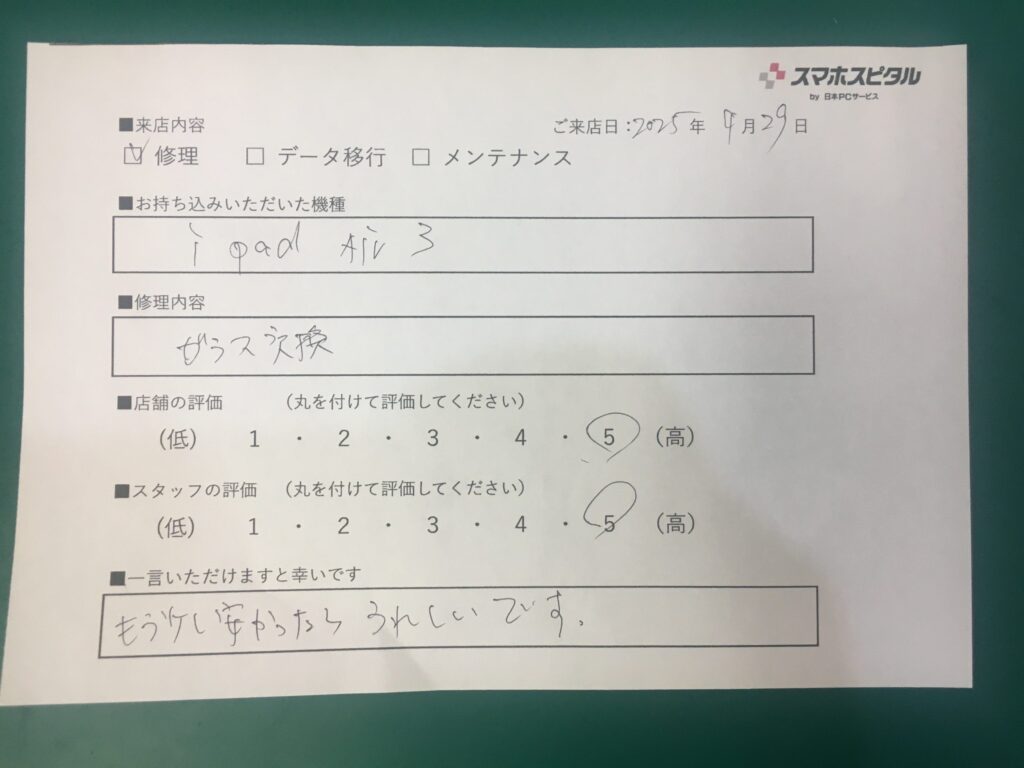 スマホスピタル
by 日本PCサービス
■来店内容
ご来店日:2025年 4月29日
☑ 修理 □ データ移行 □ メンテナンス
■お持ち込みいただいた機種
ipad Air 3
■修理内容
ガラス交換
■店舗の評価 (丸を付けて評価してください)
(低) 1 ・ 2 ・ 3 ・ 4 ・ 5 (高)
■スタッフの評価 (丸を付けて評価してください)
(低) 1 ・ 2 ・ 3 ・ 4 ・ 5 (高)
■一言いただけますと幸いです
もう少し安かったらうれしいです。